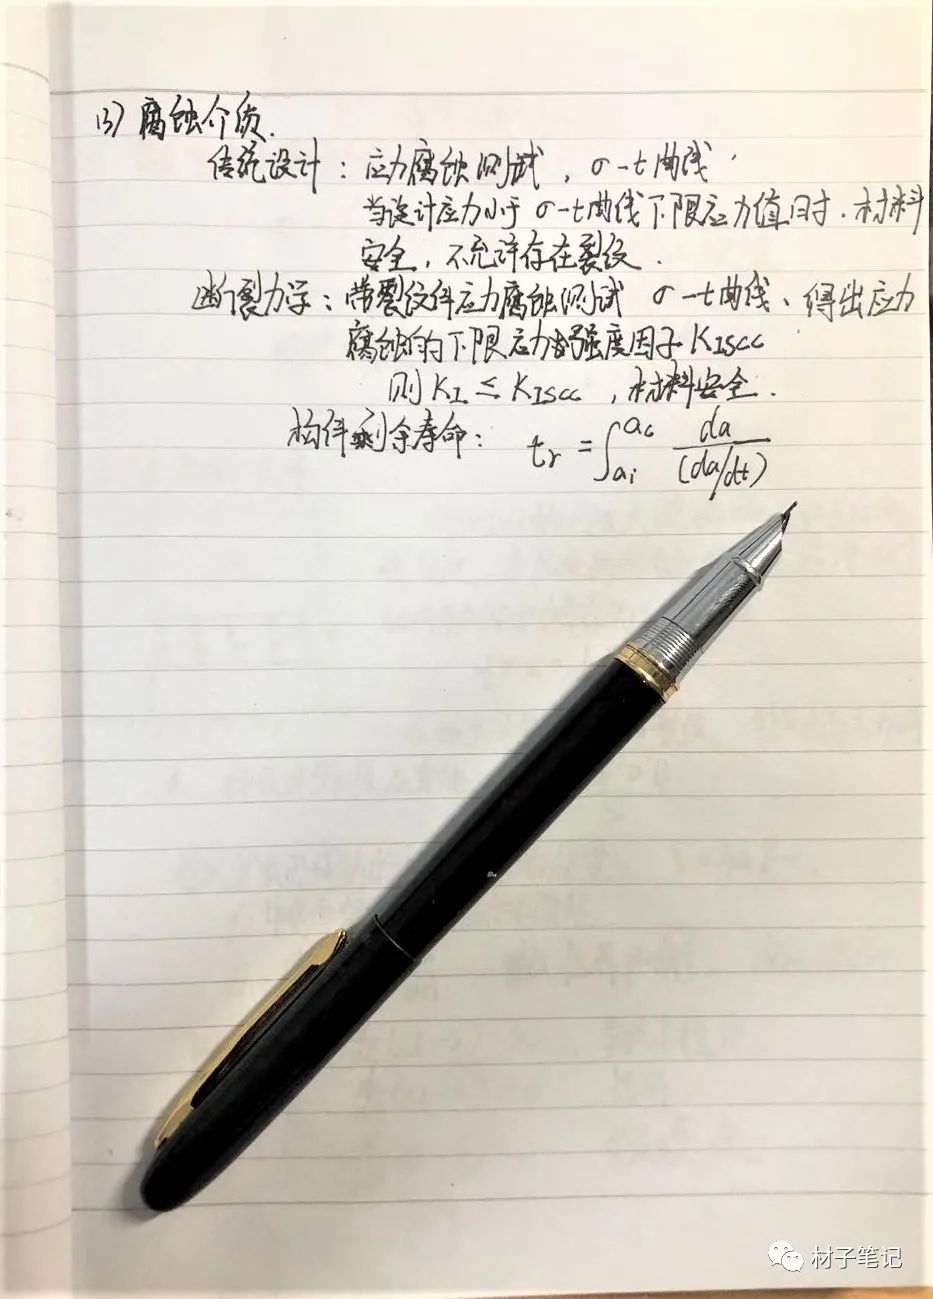 (3) 腐蚀介质.
传统设计：应力腐蚀测试，σ-t曲线.
当设计应力小于 σ-t曲线下限应力值时.材料
安全，不允许存在裂纹.
断裂力学：带裂纹件应力腐蚀测试 σ-t曲线、得出应力
腐蚀的下限应力强度因子 KISCC
则 KI ≤ KISCC ，材料安全.
构件剩余寿命： tr = ∫_{ai}^{ac} da/(da/dt)
材子笔记